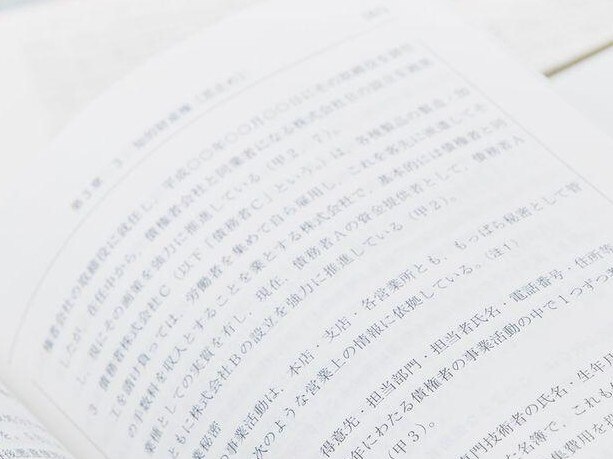 第３章　３　知的財産権（差止め）
権者会社の取締役に就任し、平成〇〇年〇〇月〇〇日にその取締役を
したが、在任中から、債権者会社と同業者になる株式会社Ｂの設立を
し、現にその画策を強力に推進している（甲２、７）。
債務者株式会社Ｃ（以下「債務者Ｃ」という。）は、各種製品の製造・加
工を請け負っては、労働者を集めて自ら雇用し、これを客先に派遣してそ
の手数料を収入とすることを業とする株式会社で、基本的には債権者と同
業種としての実質を有し、現在、債務者Ａの資金提供者として、債務者Ａ
ともに株式会社Ｂの設立を強力に推進している（甲２）。
業秘密
の事業活動は、本店・支店・各営業所とも、もっぱら秘密として管
次のような営業上の情報に依拠している。（注１）
得意先・担当部門・担当者氏名・電話番号・住所等
年にわたる債権者の事業活動の中で１つずつ
（甲３）。
専門技術者の氏名・生年月
た名簿で、これも
集費用を